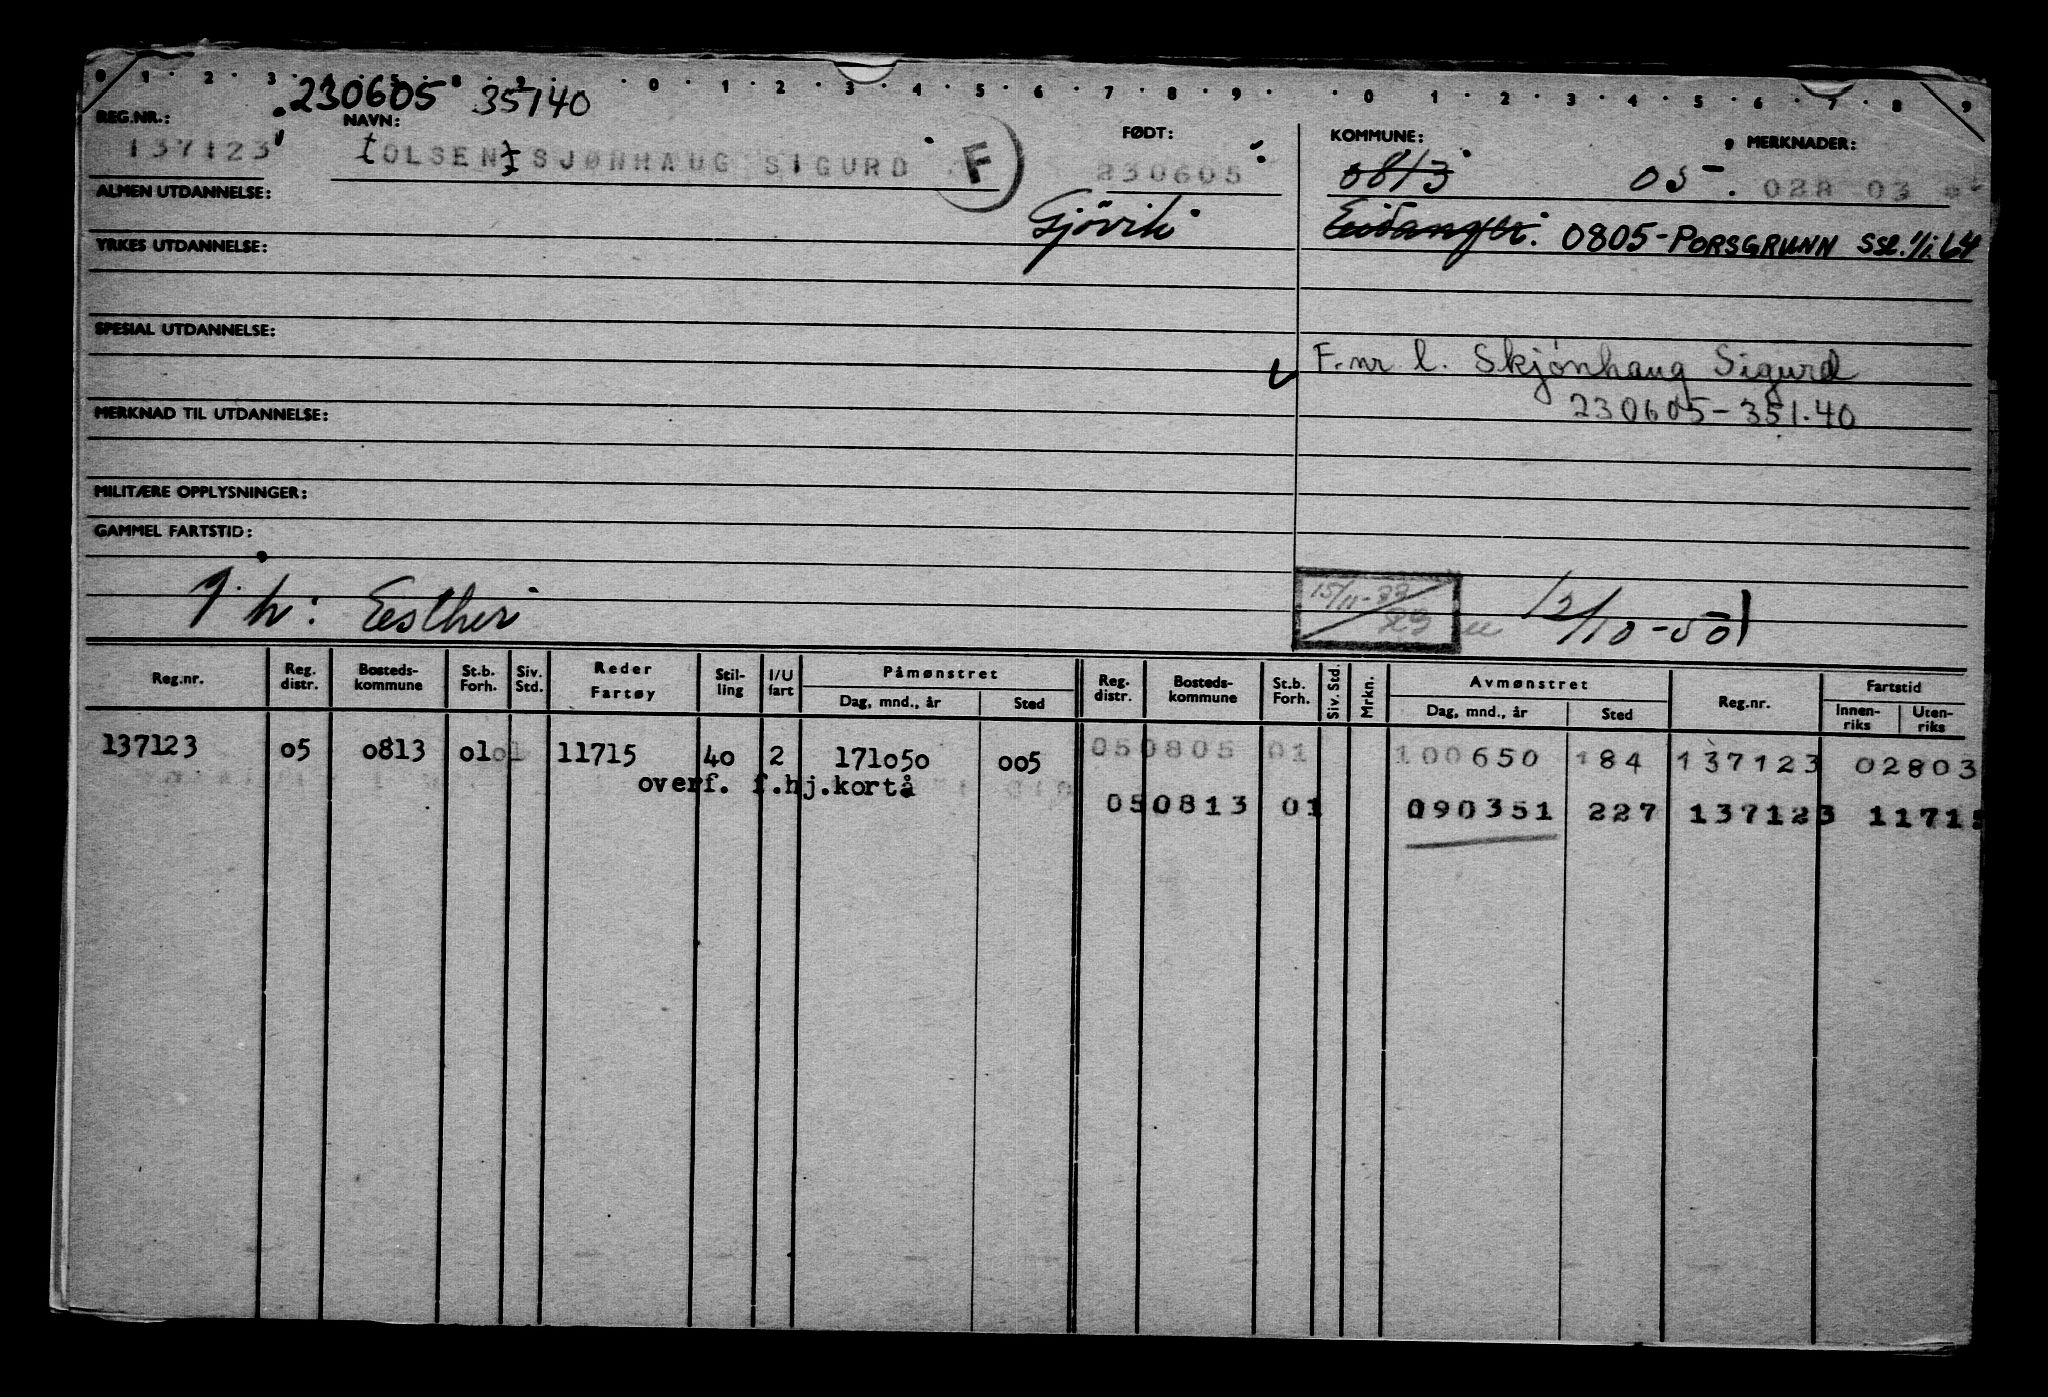 0 · 1 · 2 · 3 · 5 · 8 · 9 · 0 · 1 · 2 · 3 · 4 · 5 · 6 · 7 · 8 · 9 · · 0 · 1 · 2 · 3 · 4 · 5 · 6 · 7 · 8 · 9
230605 35140
REG.NR.: NAVN: FØDT: KOMMUNE: MERKNADER:
137123 OLSEN SJØNHAUG SIGURD F 230605 0813 05 028 03
ALMEN UTDANNELSE:
Gjövik Eidanger. 0805-PORSGRUNN SSL. 1/1.64
YRKES UTDANNELSE:
SPESIAL UTDANNELSE:
F.nr l. Skjönhaug Sigurd
230605-351.40
MERKNAD TIL UTDANNELSE:
MILITÆRE OPPLYSNINGER:
GAMMEL FARTSTID:
Esther 15/11- 12/10-50
Reg.nr. Reg. distr. Bosteds- kommune St.b. Forh. Siv. Std. Reder Fartøy Stil- ling I/U fart Påmønstret Dag, mnd., år Sted Reg. distr. Bosteds- kommune St.b. Forh. Siv. Std. Mrkn. Avmønstret Dag, mnd., år Sted Reg.nr. Fartstid Innen- riks Uten- riks
137123 05 0813 01 01 11715 40 2 171050 005 05 0805 01 100650 184 137123 02803
overf. f.hj.kortå 05 0813 01 090351 227 137123 1171